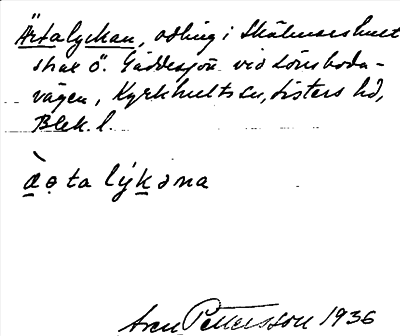 Ärtalyckan, odling i Skälmershult
strax ö. Gäddesjön vid Lönsboda-
vägen, Kyrkhults sn, Listers hd,
Blek. l.
ὰ̱ət̥a lýḵəna
Sven Pettersson 1936